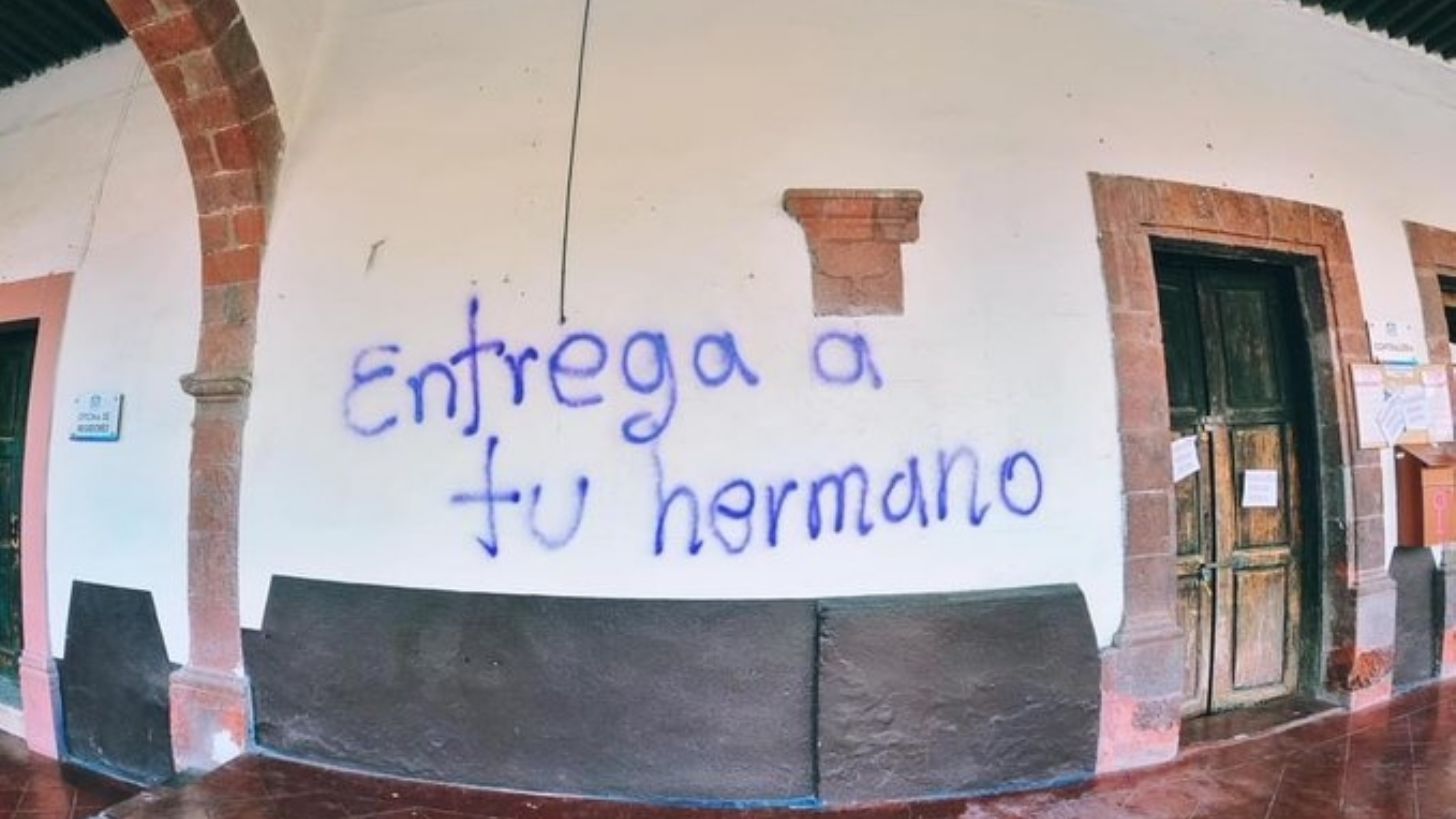 OFICINA DE
REGIDORES
Entrega a
tu hermano
CONTRALORÍA